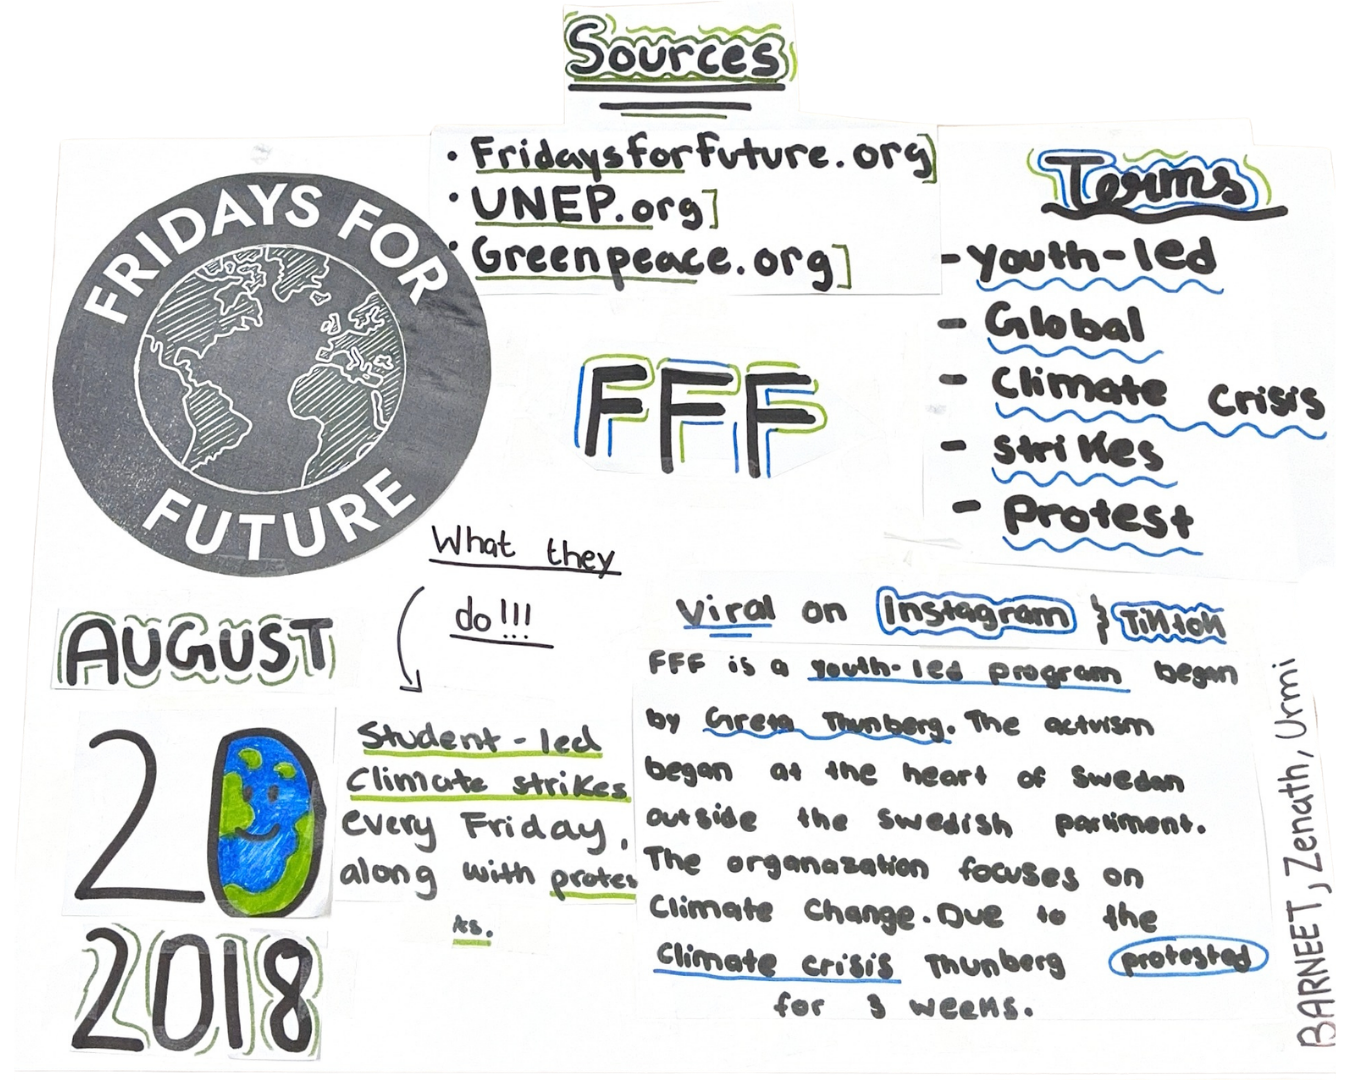 Sources
• Fridaysforfuture.org]
• UNEP.org]
• Greenpeace.org]
Terms
- youth-led
- Global
- Climate crisis
- strikes
- Protest
FRIDAYS FOR
FUTURE
FFF
What they
do!!!
AUGUST
20
2018
Student-led
Climate strikes
every Friday,
along with protes
ts.
Viral on Instagram & TikToK
FFF is a youth-led program began
by Greta Thunberg. The activism
began at the heart of Swedan
outside the swedish parliment.
The organazation focuses on
Climate Change. Due to the
Climate crisis Thunberg protested
for 3 weeks.
BARNEET, Zenath, Urmi